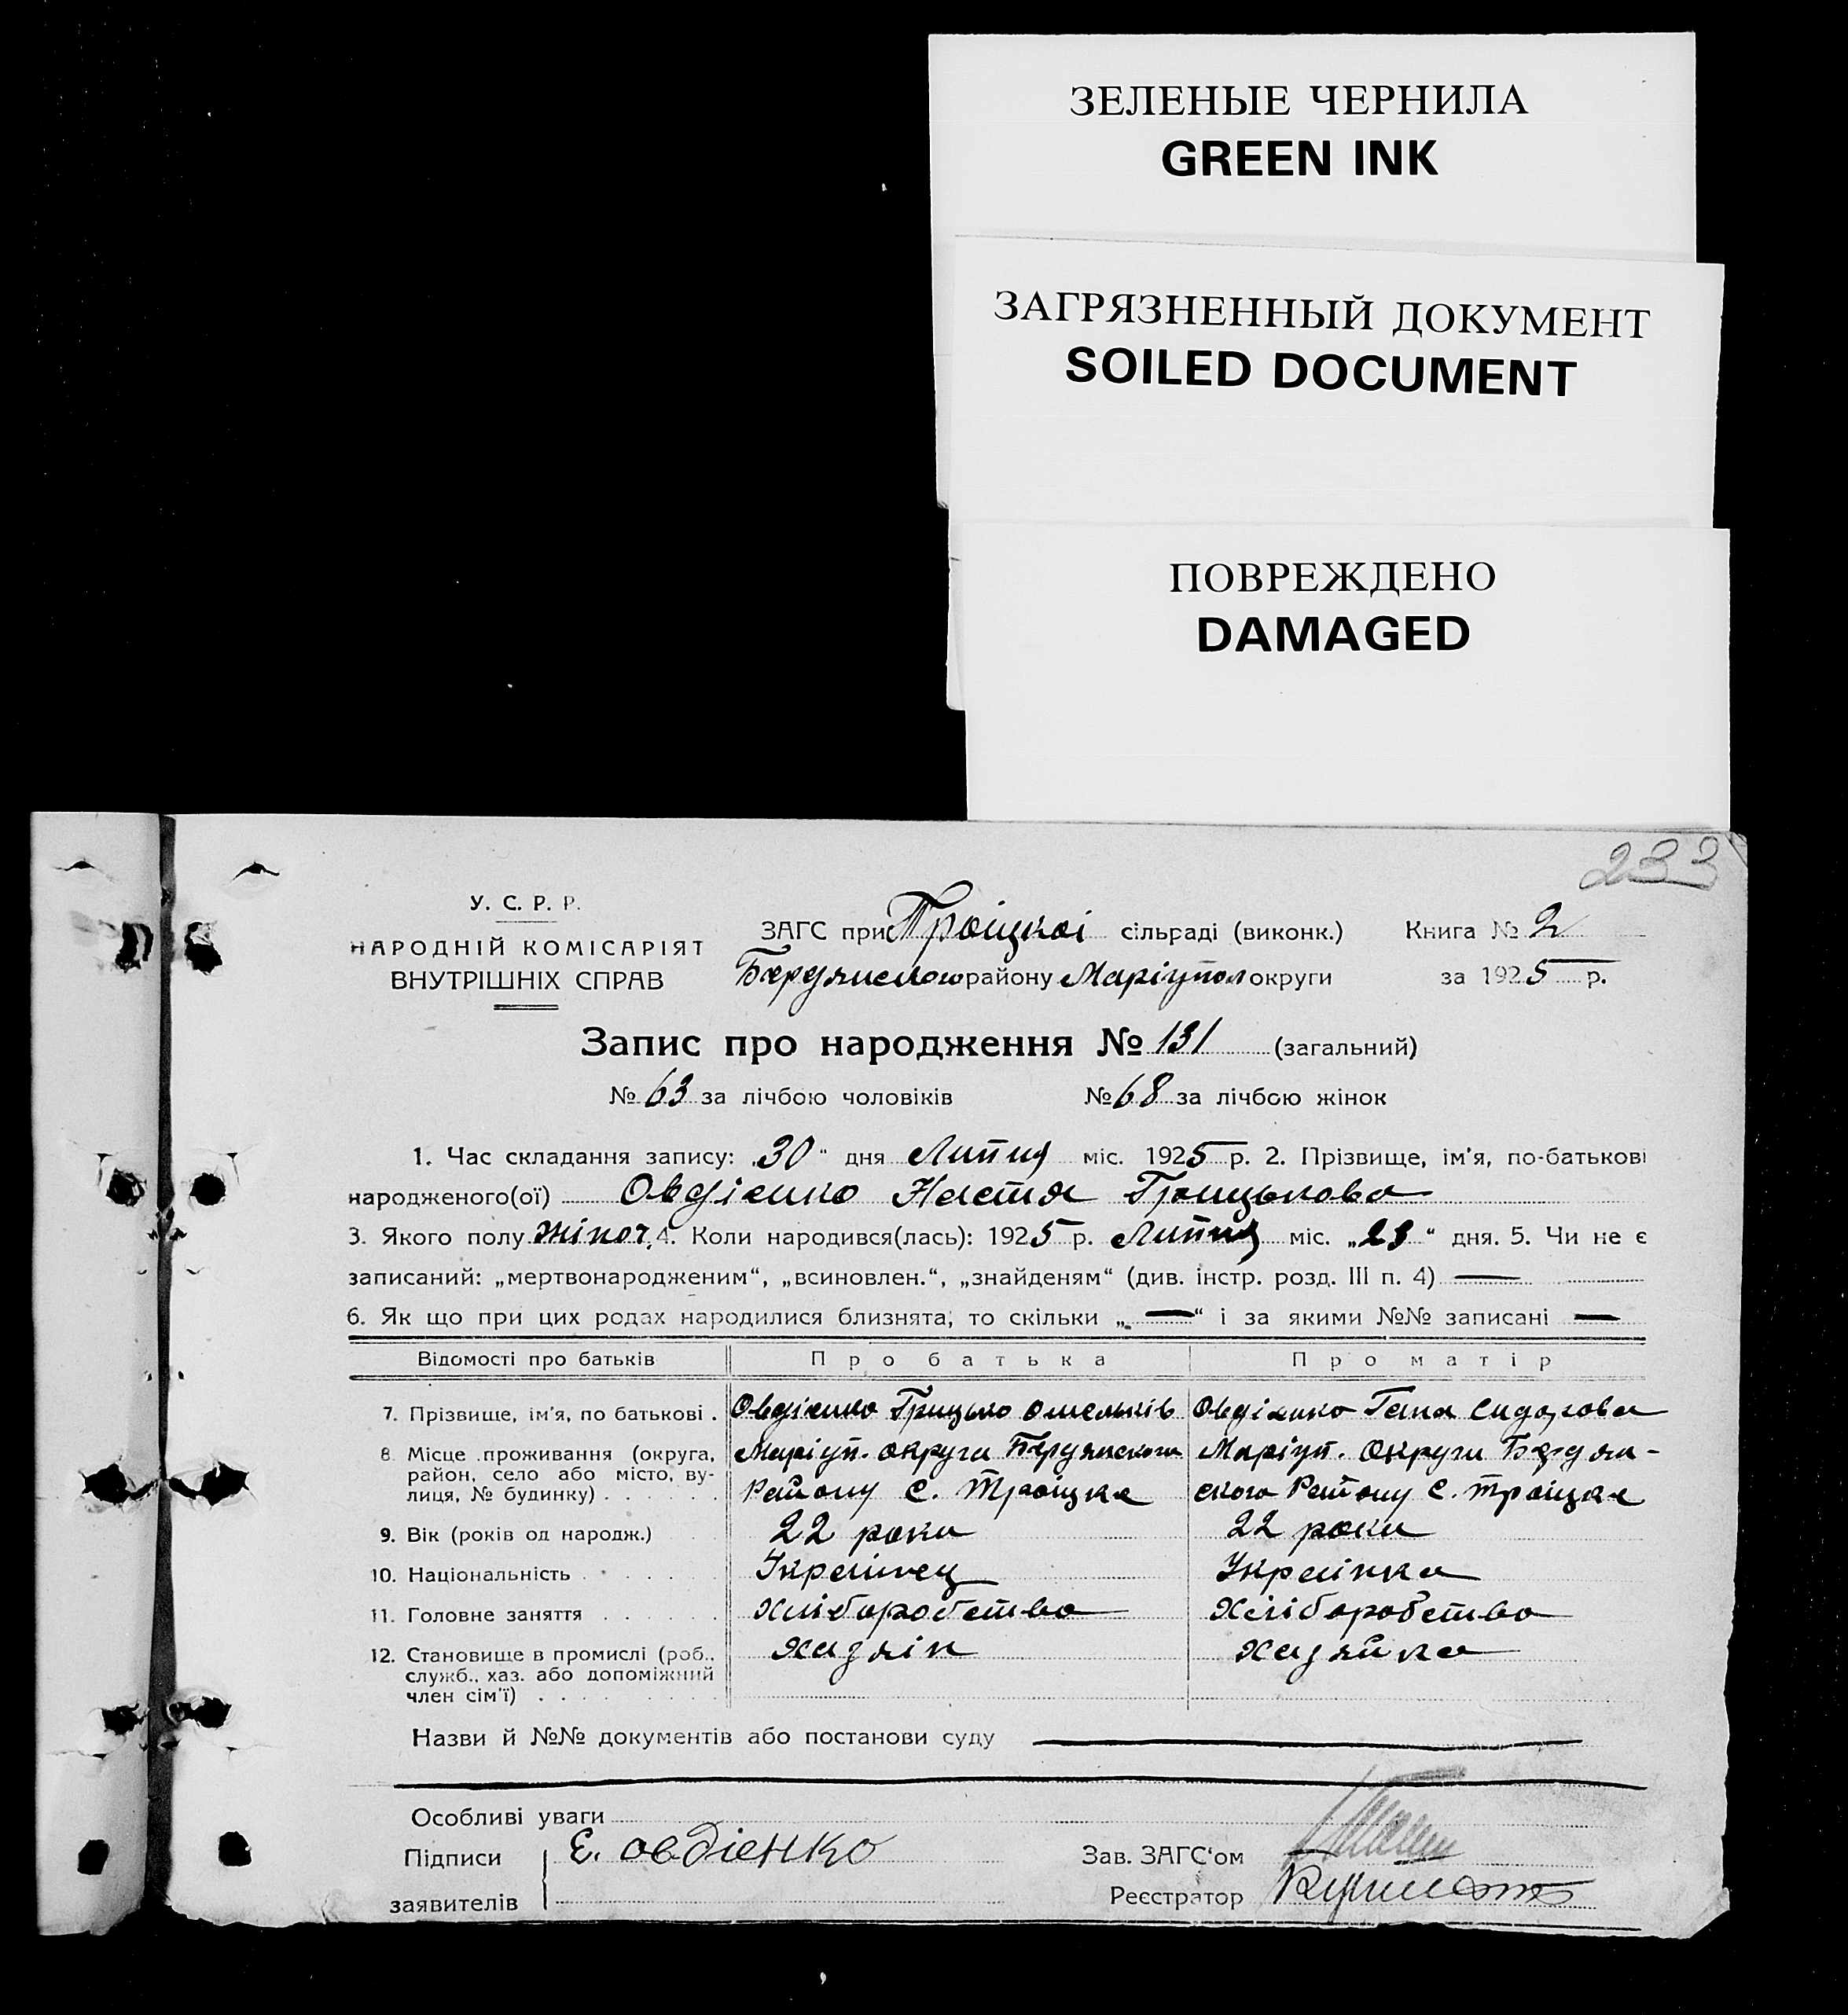 ЗЕЛЕНЫЕ ЧЕРНИЛА
GREEN INK
ЗАГРЯЗНЕННЫЙ ДОКУМЕНТ
SOILED DOCUMENT
ПОВРЕЖДЕНО
DAMAGED
233
У. С. Р. Р.
НАРОДНІЙ КОМІСАРІЯТ
ВНУТРІШНІХ СПРАВ
ЗАГС при Троіцкоі сільраді (виконк.) Книга № 2
Бердянського району Маріупол округи за 1925 р.
Запис про народження № 131 (загальний)
№ 63 за лічбою чоловіків № 68 за лічбою жінок
1. Час складання запису: „30“ дня Липня міс. 1925 р. 2. Прізвище, ім'я, по-батькові
народженого(ої) Овдієнко Настя Грицькова
3. Якого полу жіноч. 4. Коли народився(лась): 1925 р. Липня міс. „23“ дня. 5. Чи не є
записаний: „мертвонародженим“, „всиновлен.“, „знайденям“ (див. інстр. розд. III п. 4) —
6. Як що при цих родах народилися близнята, то скільки „—“ і за якими №№ записані —
Відомості про батьків Про батька Про матір
7. Прізвище, ім'я, по батькові . Овдієнко Грицько Омельків Овдієнко Гана Сидорова
8. Місце проживання (округа, Маріуп. округи Бердянского Маріуп. Округи Бердян-
район, село або місто, ву-
лиця, № будинку) . . . . . . Району с. Троіцке ского Району с. Троіцке
9. Вік (років од народж.) 22 роки 22 роки
10. Національність . . . . . . Украінец Украінка
11. Головне заняття . . . . . . Хліборобство Хліборобство
12. Становище в промислі (роб., хазяін хазяйка
служб., хаз. або допоміжний
член сім'ї) . . . . . . . . .
Назви й №№ документів або постанови суду
Особливі уваги
Підписи Е. овдіенко Зав. ЗАГС'ом
заявителів Реєстратор